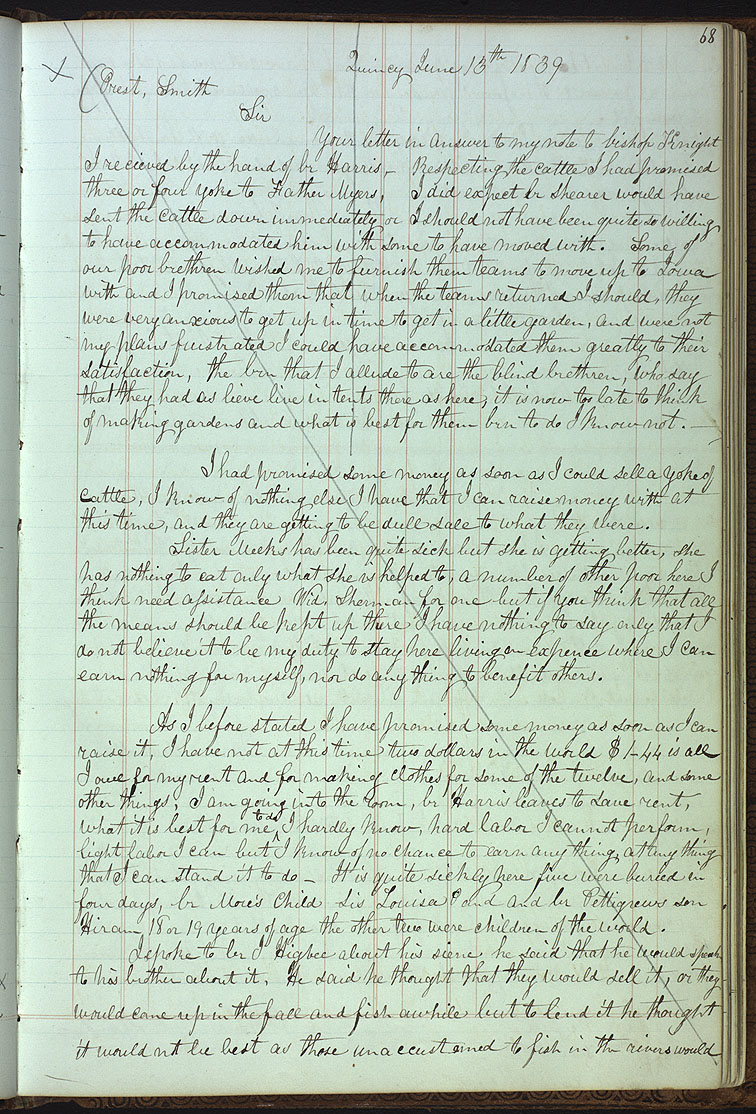 68
Quincy June 13th 1839
Prest, Smith
Sir
Your letter in answer to my note to bishop Knight
I recieved by the hand of br Harris, Respecting the cattle I had promised
three or four yoke to Father Myers, I did expect br shearer would have
sent the cattle down immediately or I should not have been quite so willing
to have accommodated him with some to have moved with. Some of
our poor brethren wished me to furnish them teams to move up to Iowa
with and I promised them that when the teams returned I should, they
were very anxious to get up in time to get in a little garden, and were not
my plans frustrated I could have accommodated them greatly to their
satisfaction, the brn that I allude to are the blind brethren, who say
that they had as lieve live in tents there as here, it is now too late to think
of making gardens and what is best for them brn to do I know not. —
I had promised some money as soon as I could sell a yoke of
cattle, I know of nothing else I have that I can raise money with at
this time, and they are getting to be dull sale to what they were.
Sister Meeks has been quite sick but she is getting better, she
has nothing to eat only what she is helped to, a number of other poor here I
think need assistance Wid, Sherman for one but if you think that all
the means should be kept up there I have nothing to say only that I
do not believe it to be my duty to stay here living on expence where I can
earn nothing for myself, nor do any thing to benefit others.
As I before stated I have promised some money as soon as I can
raise it, I have not at this time two dollars in the world $1-44 is all
I owe for my rent and for making clothes for some of the twelve, and some
other things, I am going into the room, br Harris leaves to save rent,
what it is best for me to do I hardly know, hard labor I cannot perform,
light labor I can but I know of no chance to earn any thing, at any thing
that I can stand it to do — It is quite sickly here five were buried in
four days, br Moie's Child Sis Louisa Pond and br Pettigrews son
Hiram 18 or 19 years of age the other two were children of the world.
I spoke to br I Higbee about his siene he said that he would speak
to his brother about it, He said he thought that they would sell it, or they
would come up in the fall and fish awhile but to lend it he thought
it would not be best as those unaccustomed to fish in the rivers would